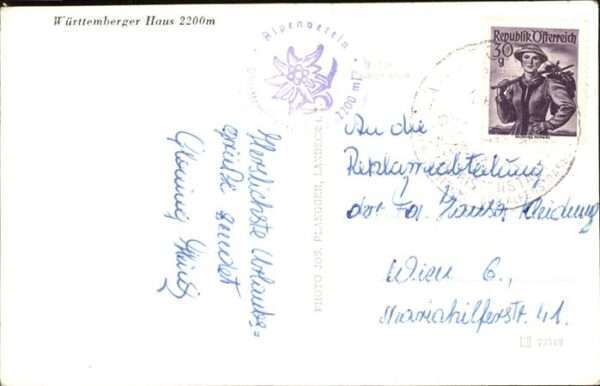 Württemberger Haus 2200m
Alpenverein
2200 m
Republik Österreich
30
g
Herzlichste Urlaubs=
grüße sendet
PHOTO JOS. PLANGGER, LANDECK i.
An die
Reklameabteilung
der Fa. Kleidung
Wien 6.,
Mariahilferstr. 41.